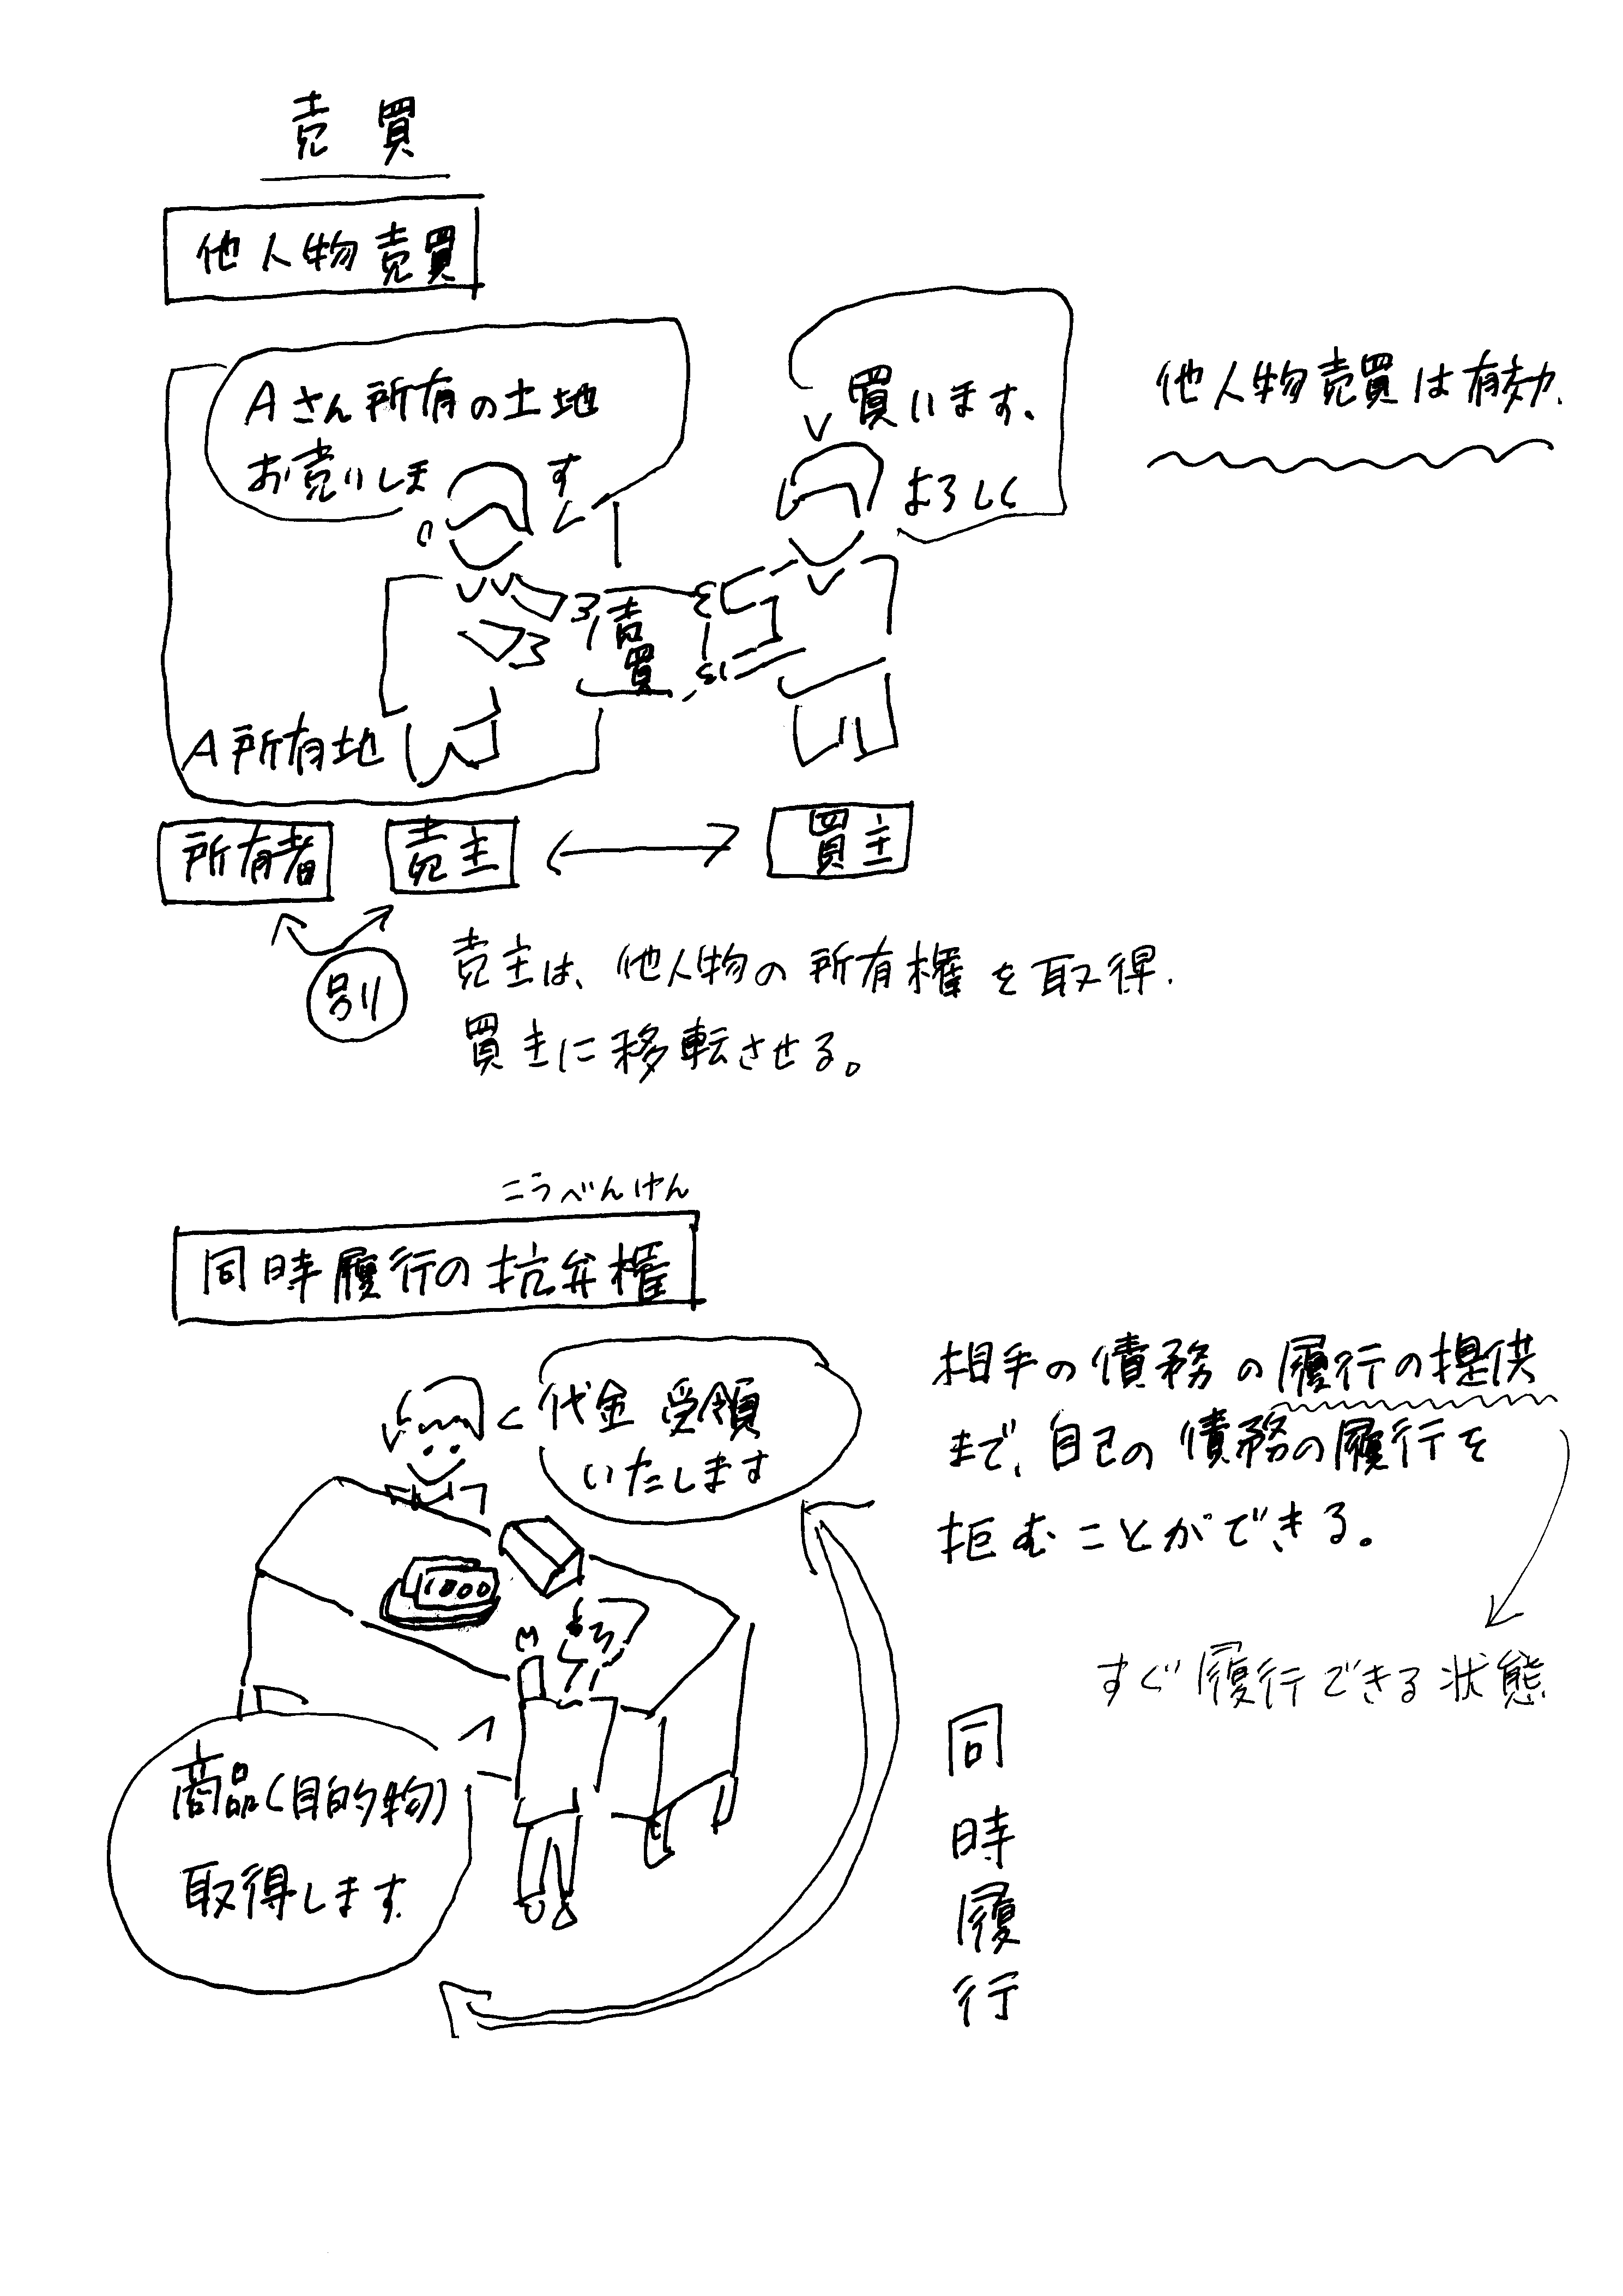 売買
他人物売買
Aさん所有の土地
お売りします
買います。
よろしく
他人物売買は有効.
売
買
A所有地
所有者
売主
買主
別
売主は、他人物の所有権を取得.
買主に移転させる。
こうべんけん
同時履行の抗弁権
代金受領
いたします
1000
商品(目的物)
取得します.
相手の債務の履行の提供
まで、自己の債務の履行を
拒むことができる。
すぐ履行できる状態
同時履行